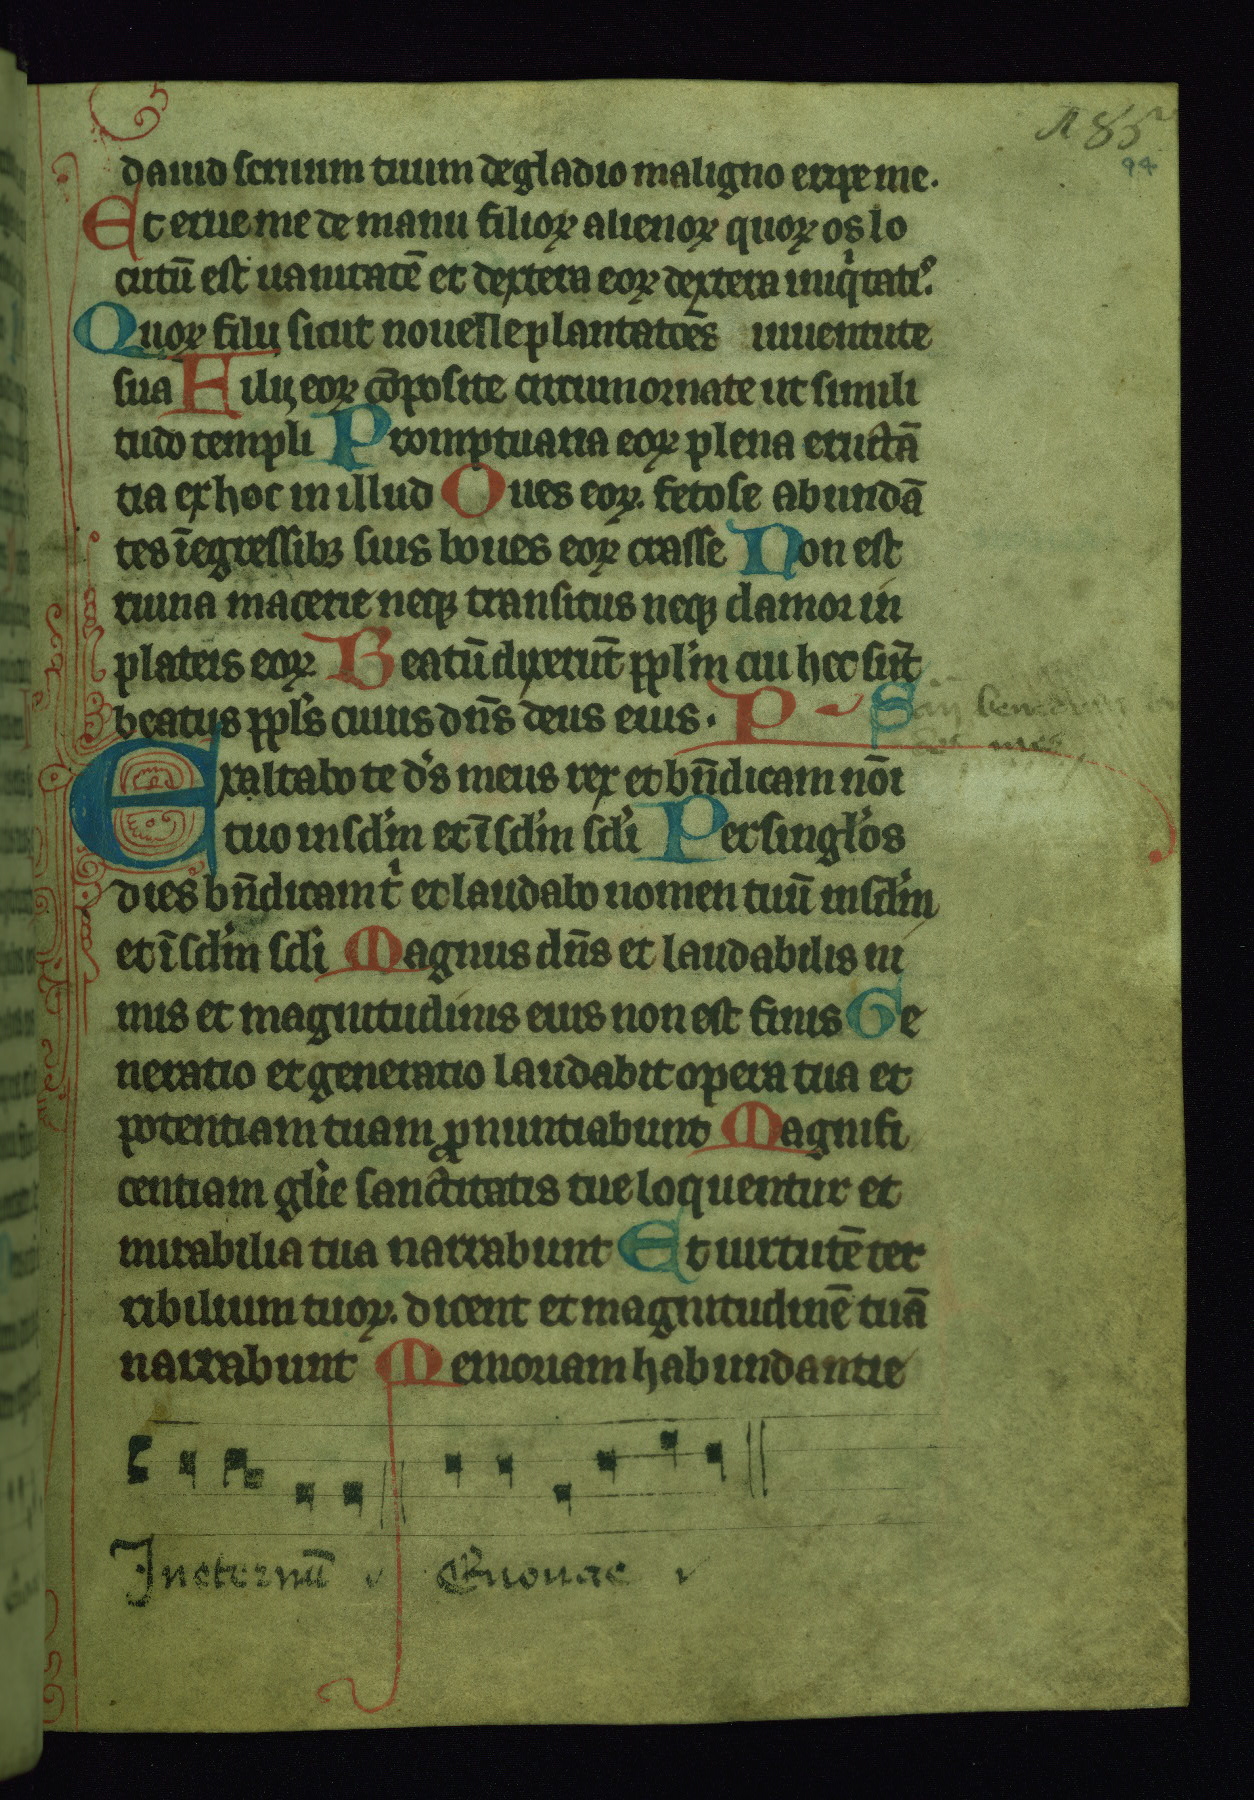 A 85
94
dauid seruum tuum de gladio maligno eripe me.
Et erue me de manu filioꝝ alienoꝝ quoꝝ os lo
cutū est uanitatē et dextera eoꝝ dextera iniq̇tatis.
Quoꝝ filii sicut nouelle plantatōes iuuentute
sua Filie eoꝝ cōposite circumornate ut simili
tudo templi Promptuaria eoꝝ plena eructā
tia ex hoc in illud Oues eoꝝ. fetose abundā
tes ī egressibꝫ suis boues eoꝝ crasse Non est
ruina macerie neqꝫ transitus neqꝫ clamor in
plateis eoꝝ Beatū dixerūt ppl'm cui hec sūt
beatus ppl's cuius dn̄s deus eius. P S
Exaltabo te d's meus rex et bn̄dicam nōi
tuo in scl'm et ī scl'm scl'i Per singl'os
dies bn̄dicam t' et laudabo nomen tuū in scl'm
et ī scl'm scl'i Magnus dn̄s et laudabilis ni
mis et magnitudinis eius non est finis Ge
neratio et generatio laudabit opera tua et
potentiam tuam ꝓnuntiabunt Magnifi
centiam gl'ie sanctitatis tue loquentur et
mirabilia tua narrabunt Et uirtutē ter
ribilium tuoꝝ. dicent et magnitudinē tuā
narrabunt Memoriam habundantie
In eternū Euouae